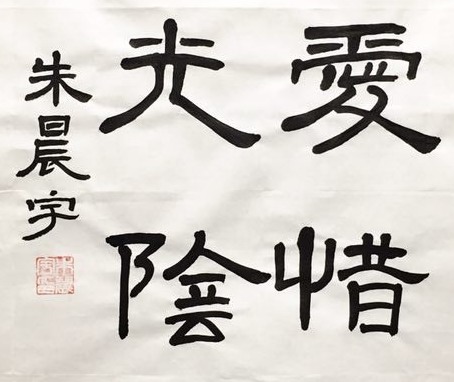 愛惜
光陰
朱晨宇